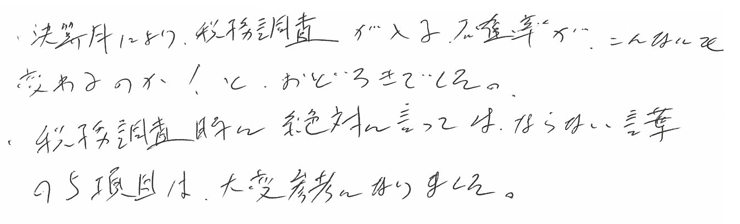 ・決算月により、税務調査が入る、確率が、こんなにも
変わるのか！と、おどろきでした。
・税務調査時に絶対に言っては、ならない言葉
の5項目は、大変参考になりました。